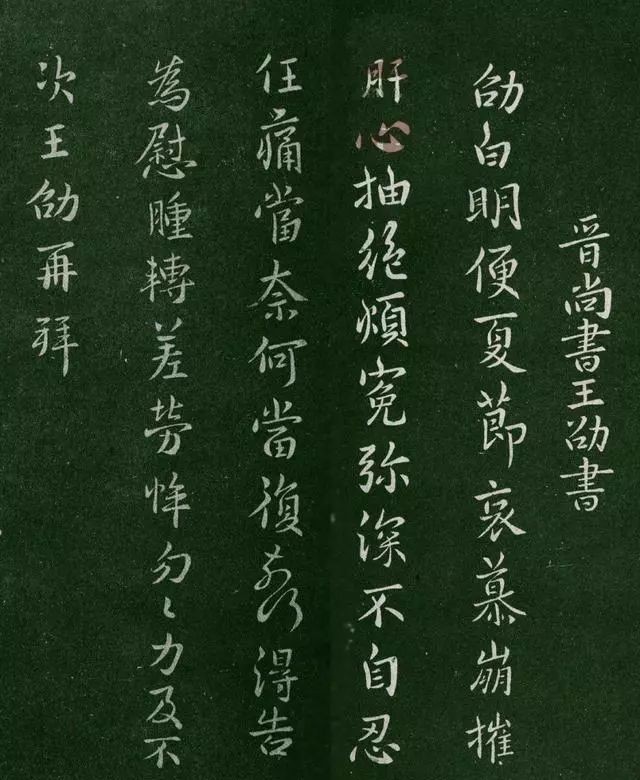 晋尚書王劭書
劭白明便夏節哀慕崩摧
肝心抽絕煩冤弥深不自忍
任痛當奈何當復奈何得告
為慰腫轉差勞悴勿〻力及不
次王劭再拜